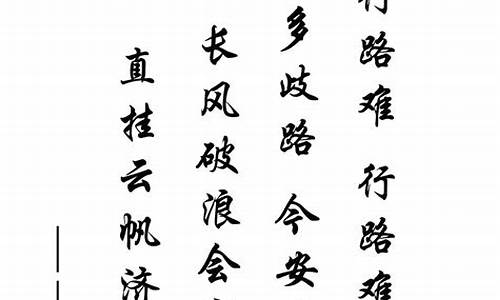 行路难 行路难
多歧路 今安
长风破浪会
直挂云帆济